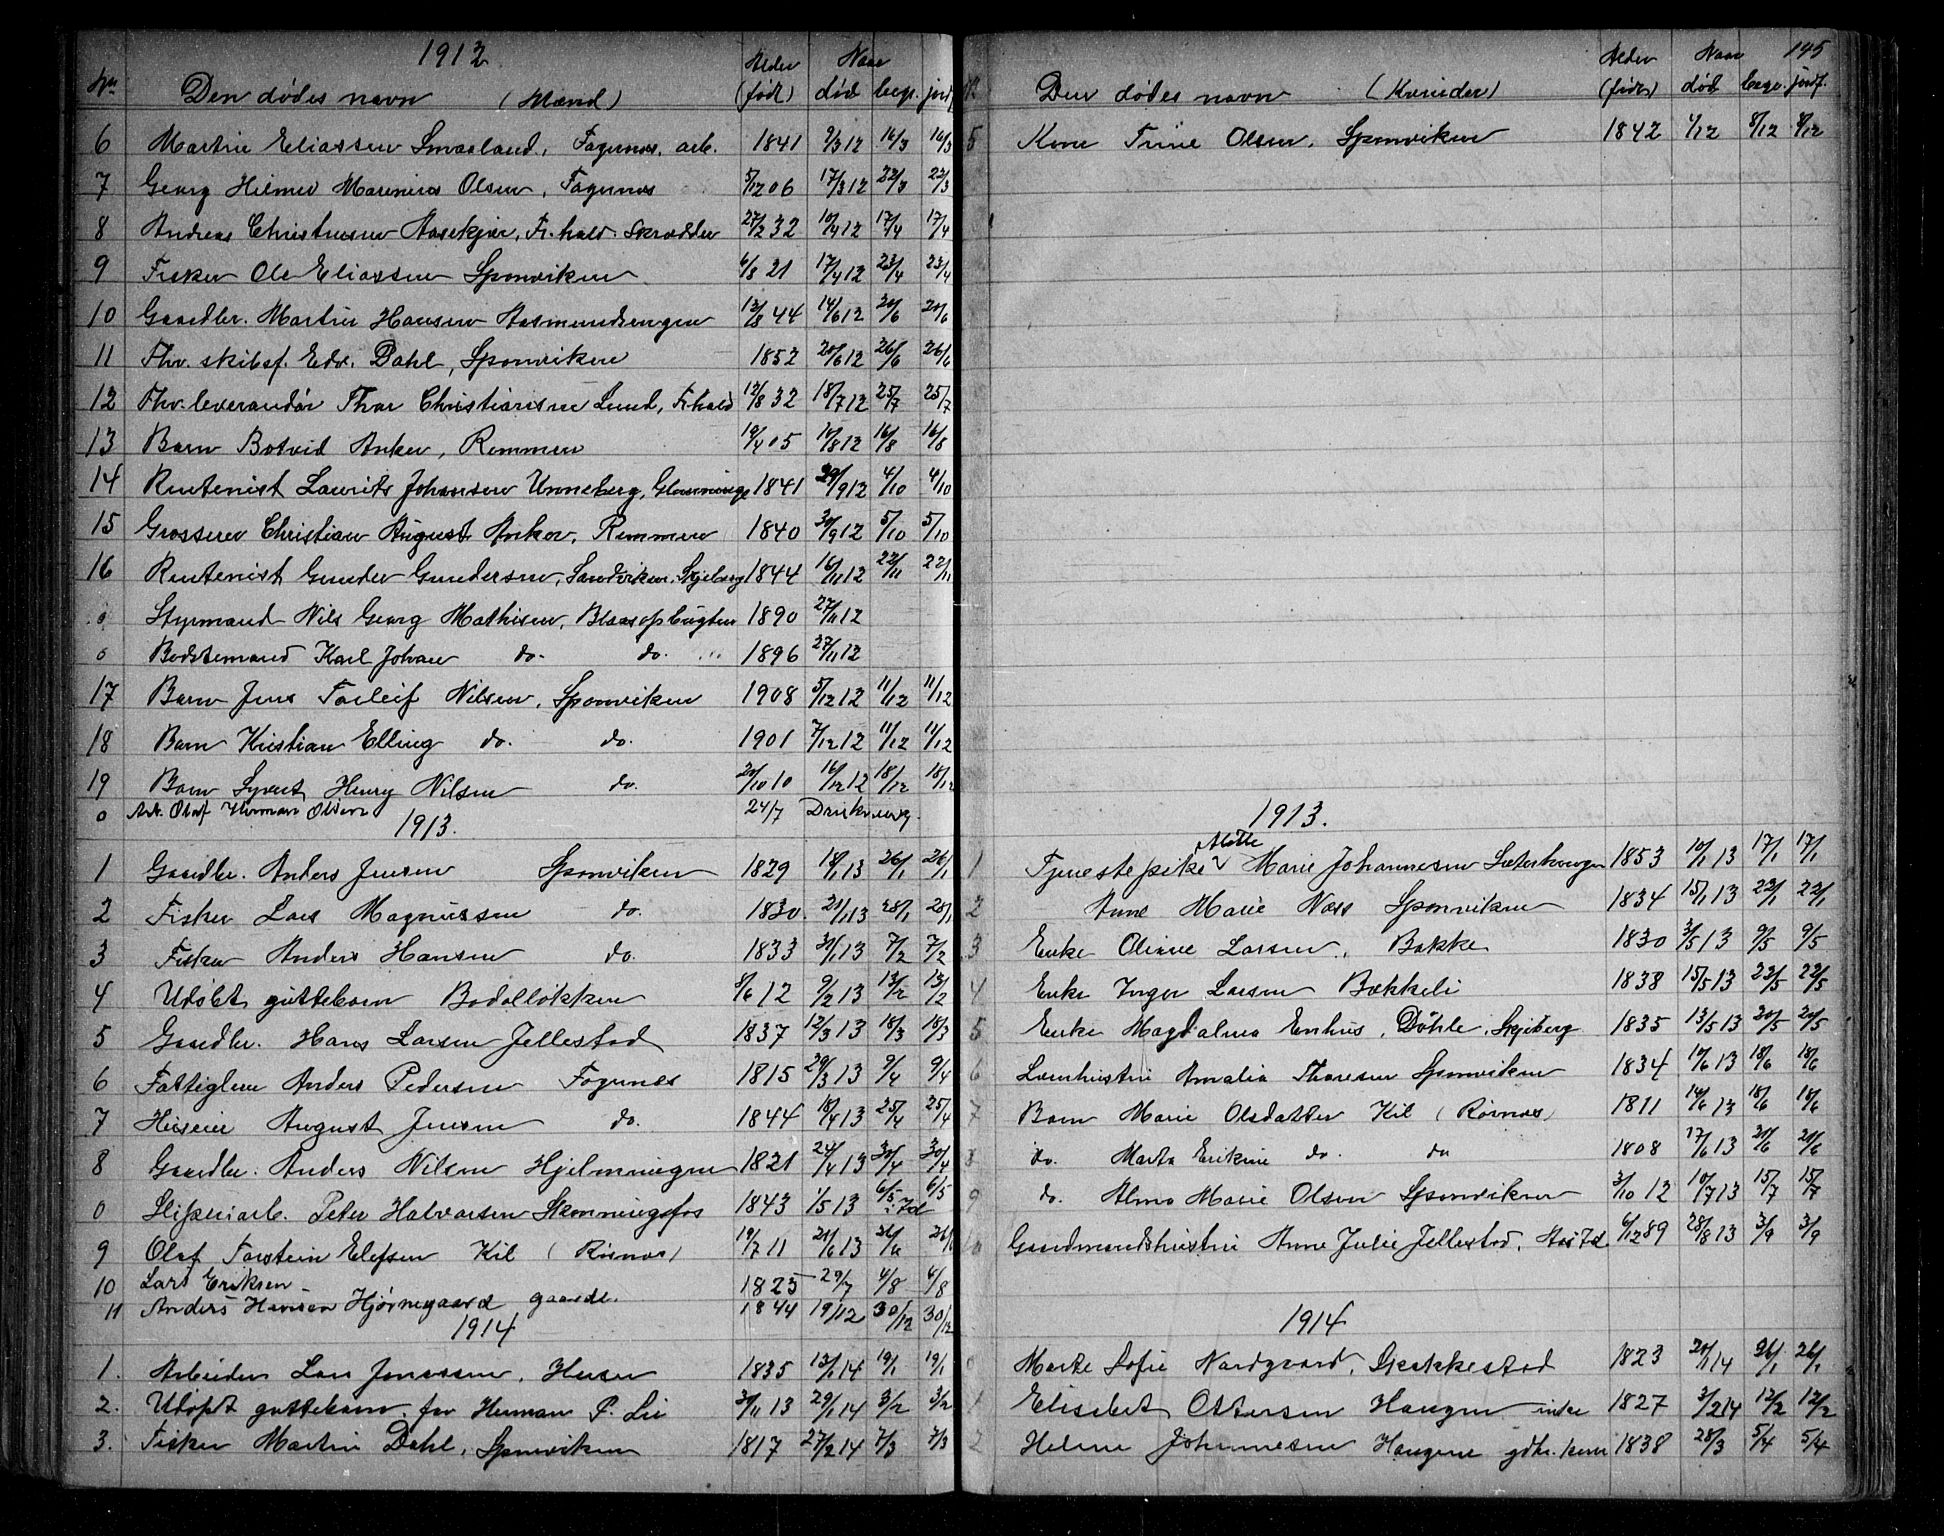 1912
Nr. Den dødes navn (Mænd) Alder (født) Naar død begr. jordf.
6 Martin Eliassen Smaaland, Fagernes, arb. 1841 9/3 12 16/3 16/3
7 Georg Hilmer Marenius Olsen, Fagernes 5/12 06 17/3 12 22/3 22/3
8 Andreas Christensen Aasekjær, Fr.hald. Skrædder 27/2 32 10/4 12 17/4 17/4
9 Fisker Ole Eliassen Sponviken 6/8 21 17/4 12 23/4 23/4
10 Gaardbr. Martin Hansen Aasmundsengen 13/8 44 14/6 12 20/6 20/6
11 Fhv. skibsf. Edv. Dahl, Sponviken 1852 20/6 12 26/6 26/6
12 Fhv. leverandør Thor Christiansen Lund, Fr.hald 12/8 32 18/7 12 25/7 25/7
13 Barn Botvid Anker, Remmen 19/4 05 10/8 12 16/8 16/8
14 Rentenist Laurits Johansen Unneberg, 1841 29/9 12 4/10 4/10
15 Grosserer Christian August Anker, Remmen 1840 30/9 12 5/10 5/10
16 Rentenist Gunder Gundersen, Sandviken, Skjeberg 1844 16/11 12 22/11 22/11
0 Styrmand Nils Georg Mathisen, Blaasopbugten 1890 27/11 12
0 Bødstemand Karl Johan do. do. 1896 27/11 12
17 Barn Jens Torleif Nilsen, Sponviken 1908 5/12 12 11/12 11/12
18 Barn Kristian Elling do. do. 1901 7/12 12 11/12 11/12
19 Barn Syvert Henry Nilsen do. 20/10 10 16/12 12 18/12 18/12
0 Arb. Olaf Herman Olsen 24/7 Drukning.
1913.
1 Gaardbr. Anders Jensen Sponviken 1829 18/1 13 26/1 26/1
2 Fisker Lars Magnussen do. 1830. 21/1 13 28/1 28/1
3 Fisker Anders Hansen do. 1833 31/1 13 7/2 7/2
4 Udøbt guttebarn Bodalløkken 8/6 12 9/2 13 13/2 13/2
5 Gaardbr. Hans Larsen Jellestad 1837 12/3 13 18/3 18/3
6 Fattiglem Anders Pedersen Fagernes 1815 29/3 13 9/4 9/4
7 Huseier August Jensen do. 1844 18/4 13 25/4 25/4
8 Gaardbr. Anders Nilsen Hjelmungen 1821 24/4 13 30/4 30/4
0 Sliperiarb. Peter Halvorsen Skonningsfos 1843 1/5 13 6/5 i Id 6/5
9 Olaf Torstein Elefsen Kil (Rørnes) 19/7 11 21/6 13 26/6 26/6
10 Lars Eriksen 1825 29/7 4/8 4/8
11 Anders Hansen Hjørnegaard gaardb. 1844 19/12 30/12 30/12
1914
1. Arbeider Lars Jonassen, Husen 1835 13/1 14 19/1 19/1
2. Udøpt guttebarn for Herman P. Lie 3/11 13 29/1 14 3/2 3/2
3. Fisker Martin Dahl, Sponviken 1817 27/2 14 7/3 7/3
145
Den dødes navn (Kvinder) Alder (født) Naar død begr. jordf.
5 Kone Trine Olsen, Sponviken 1842 1/12 8/12 8/12
1913.
1 Tjenestepike Mathe Marie Johannesen 1853 10/1 13 17/1 17/1
2 Anne Marie Næss Sponviken 1834 15/1 13 22/1 22/1
3 Enke Oliane Larsen, Bakke 1830 3/5 13 9/5 9/5
4 Enke Inger Larsen Bækkeli 1838 15/5 13 22/5 22/5
5 Enke Magdalena Enhus, Døhle, Skjeberg 1835 13/5 13 20/5 20/5
6 Lodshustru Amalia Thoresen Sponviken 1834 10/6 13 18/6 18/6
7 Barn Marie Olsdatter Kil (Rørnes) 1811 14/6 13 18/6 18/6
8 do. Marta Erikine do. do 1808 17/6 13 21/6 21/6
9 do. Alma Marie Olsen Sponviken 3/10 12 10/7 13 15/7 15/7
10 Gaardmandshustru Anne Julie Jellestad, 6/12 89 28/8 13 3/9 3/9
1914
0 Marte Sofie Nordgaard, Skakkestad 1823 20/1 14 26/1 26/1
1 Elisabet Ottersen Haugen enke 1827 3/2 14 12/2 12/2
2 Helene Johannesen Haugene gdbr. kone 1838 28/3 5/4 5/4